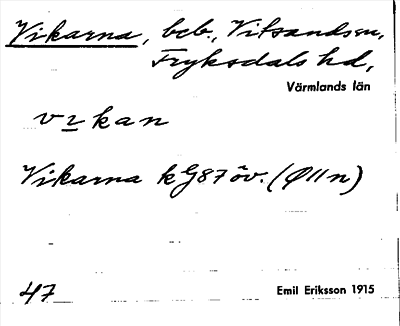 Vikarna, beb., Vitsands sn,
Fryksdals hd,
Värmlands län
vikan
Vikarna kG87öv. (Ø11n)
47 Emil Eriksson 1915